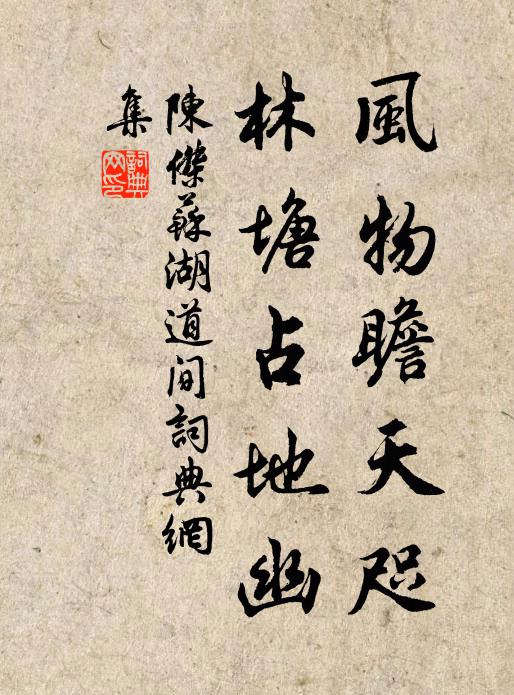 風物瞻天咫
林塘占地幽
陳傑蘇湖道间詞典網
集
詞典網印